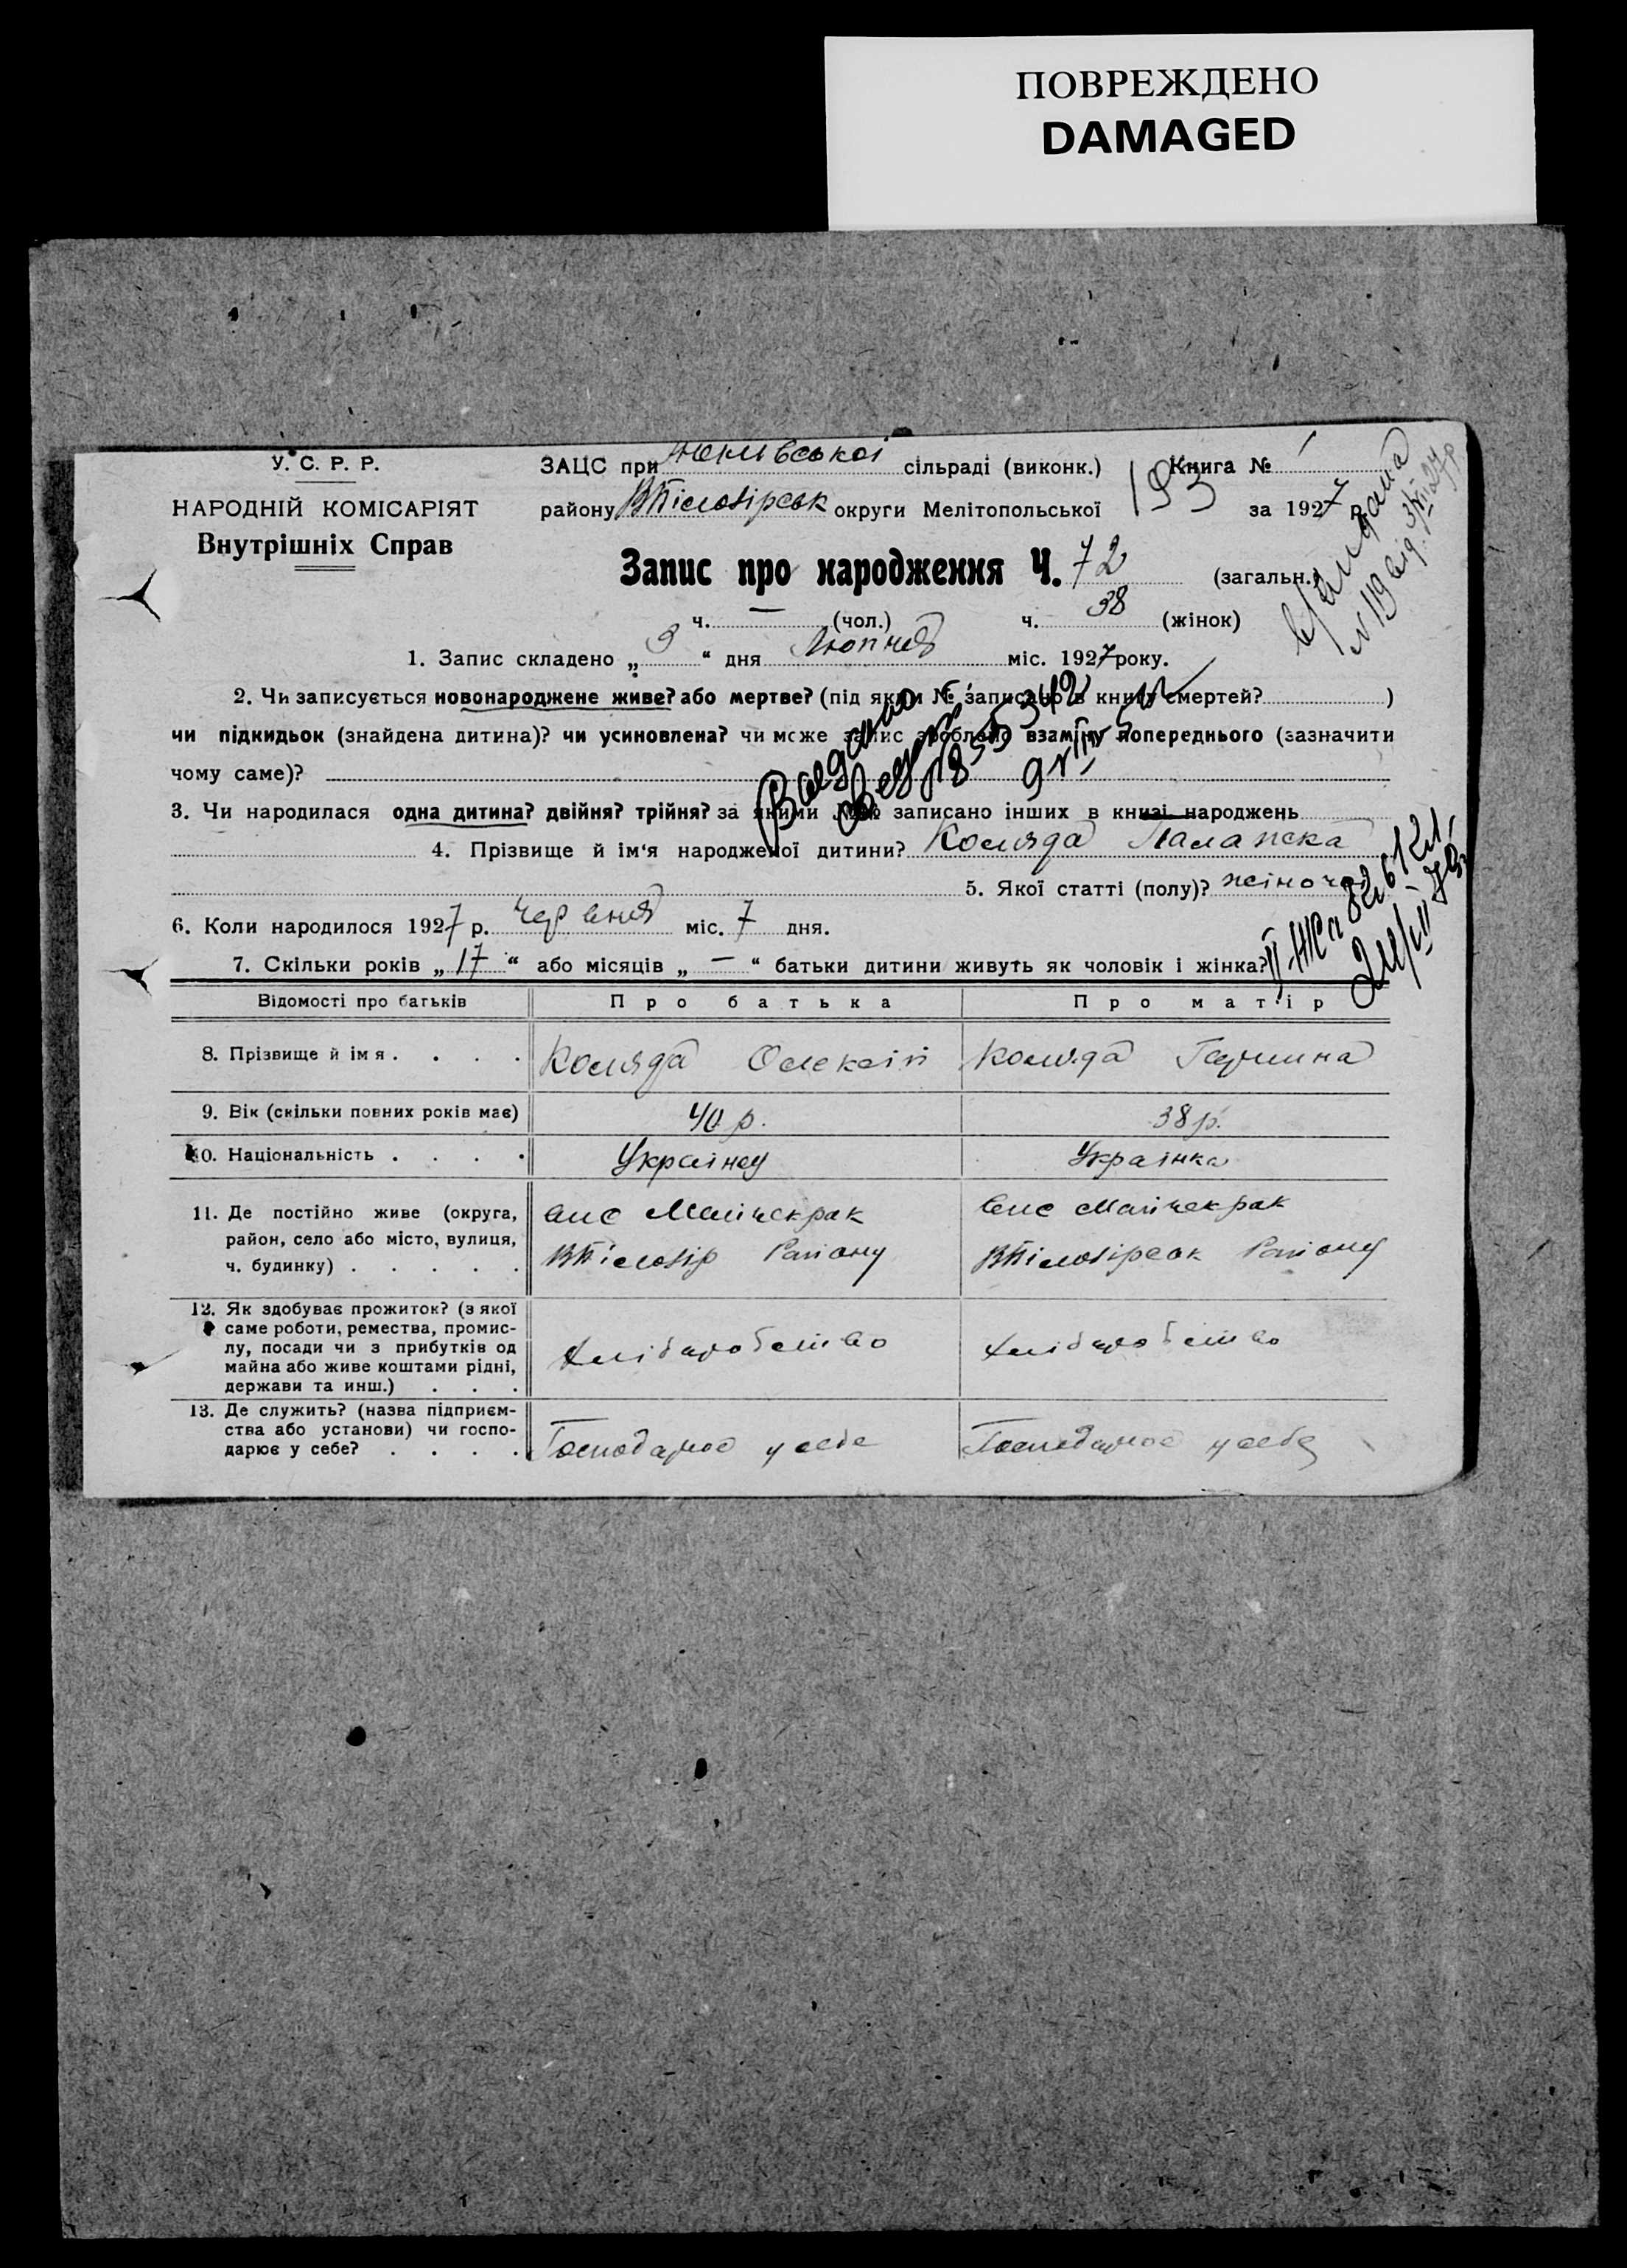 ПОВРЕЖДЕНО
DAMAGED
У. С. Р. Р.
НАРОДНІЙ КОМІСАРІЯТ
Внутрішніх Справ
ЗАЦС при сільраді (виконк.) Книга № 1
району округи Мелітопольської 193 за 1927 р.
Запис про народження Ч. 72 (загальн.)
ч. — (чол.) ч. 38 (жінок)
1. Запис складено „ 3 “ дня міс. 1927 року.
2. Чи записується новонароджене живе? або мертве? (під яким № записано в книгу смертей? )
чи підкидьок (знайдена дитина)? чи усиновлена? чи може запис зроблено взаміну попереднього (зазначити
чому саме)?
3. Чи народилася одна дитина? двійня? трійня? за якими №№ записано інших в книзі народжень
4. Прізвище й ім‘я народженої дитини? Коляда Палажка
5. Якої статті (полу)? жіночої
6. Коли народилося 1927 р. червня міс. 7 дня.
7. Скільки років „ 17 “ або місяців „ — “ батьки дитини живуть як чоловік і жінка?
Відомості про батьків Про батька Про матір
8. Прізвище й імя . . . . Коляда Олексій Коляда Горпина
9. Вік (скільки повних років має) 40 р. 38 р.
10. Національність . . . . Українец Українка
11. Де постійно живе (округа,
район, село або місто, вулиця,
ч. будинку) . . . . .
12. Як здобуває прожиток? (з якої
саме роботи, ремества, промис-
лу, посади чи з прибутків од
майна або живе коштами рідні,
держави та инш.) . . .
Хліборобство Хліборобство
13. Де служить? (назва підприєм-
ства або установи) чи госпо-
дарює у себе? . . . .
Господарює у себе Господарює у себе